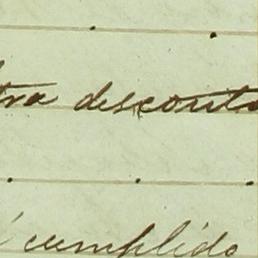 tra desconto
cumplido